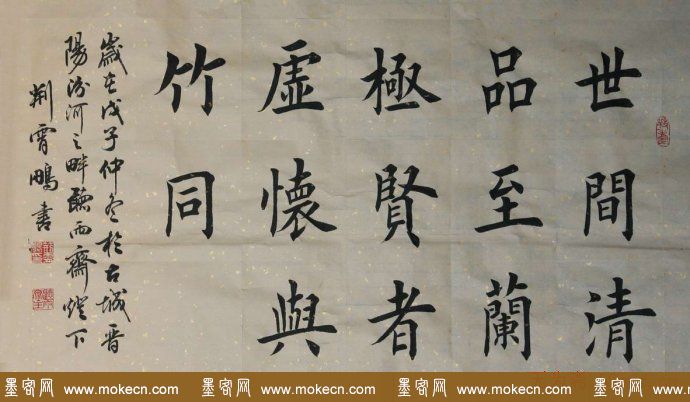 世間清
品至蘭
極賢者
虛懷與
竹同
歲在戊子仲冬於古城晉
陽汾河之畔聽雨齋燈下
荆霄鵬書
墨客网 www.mokecn.com 墨客网 www.mokecn.com 墨客网 www.mokecn.com 墨客网 www.mokecn.com